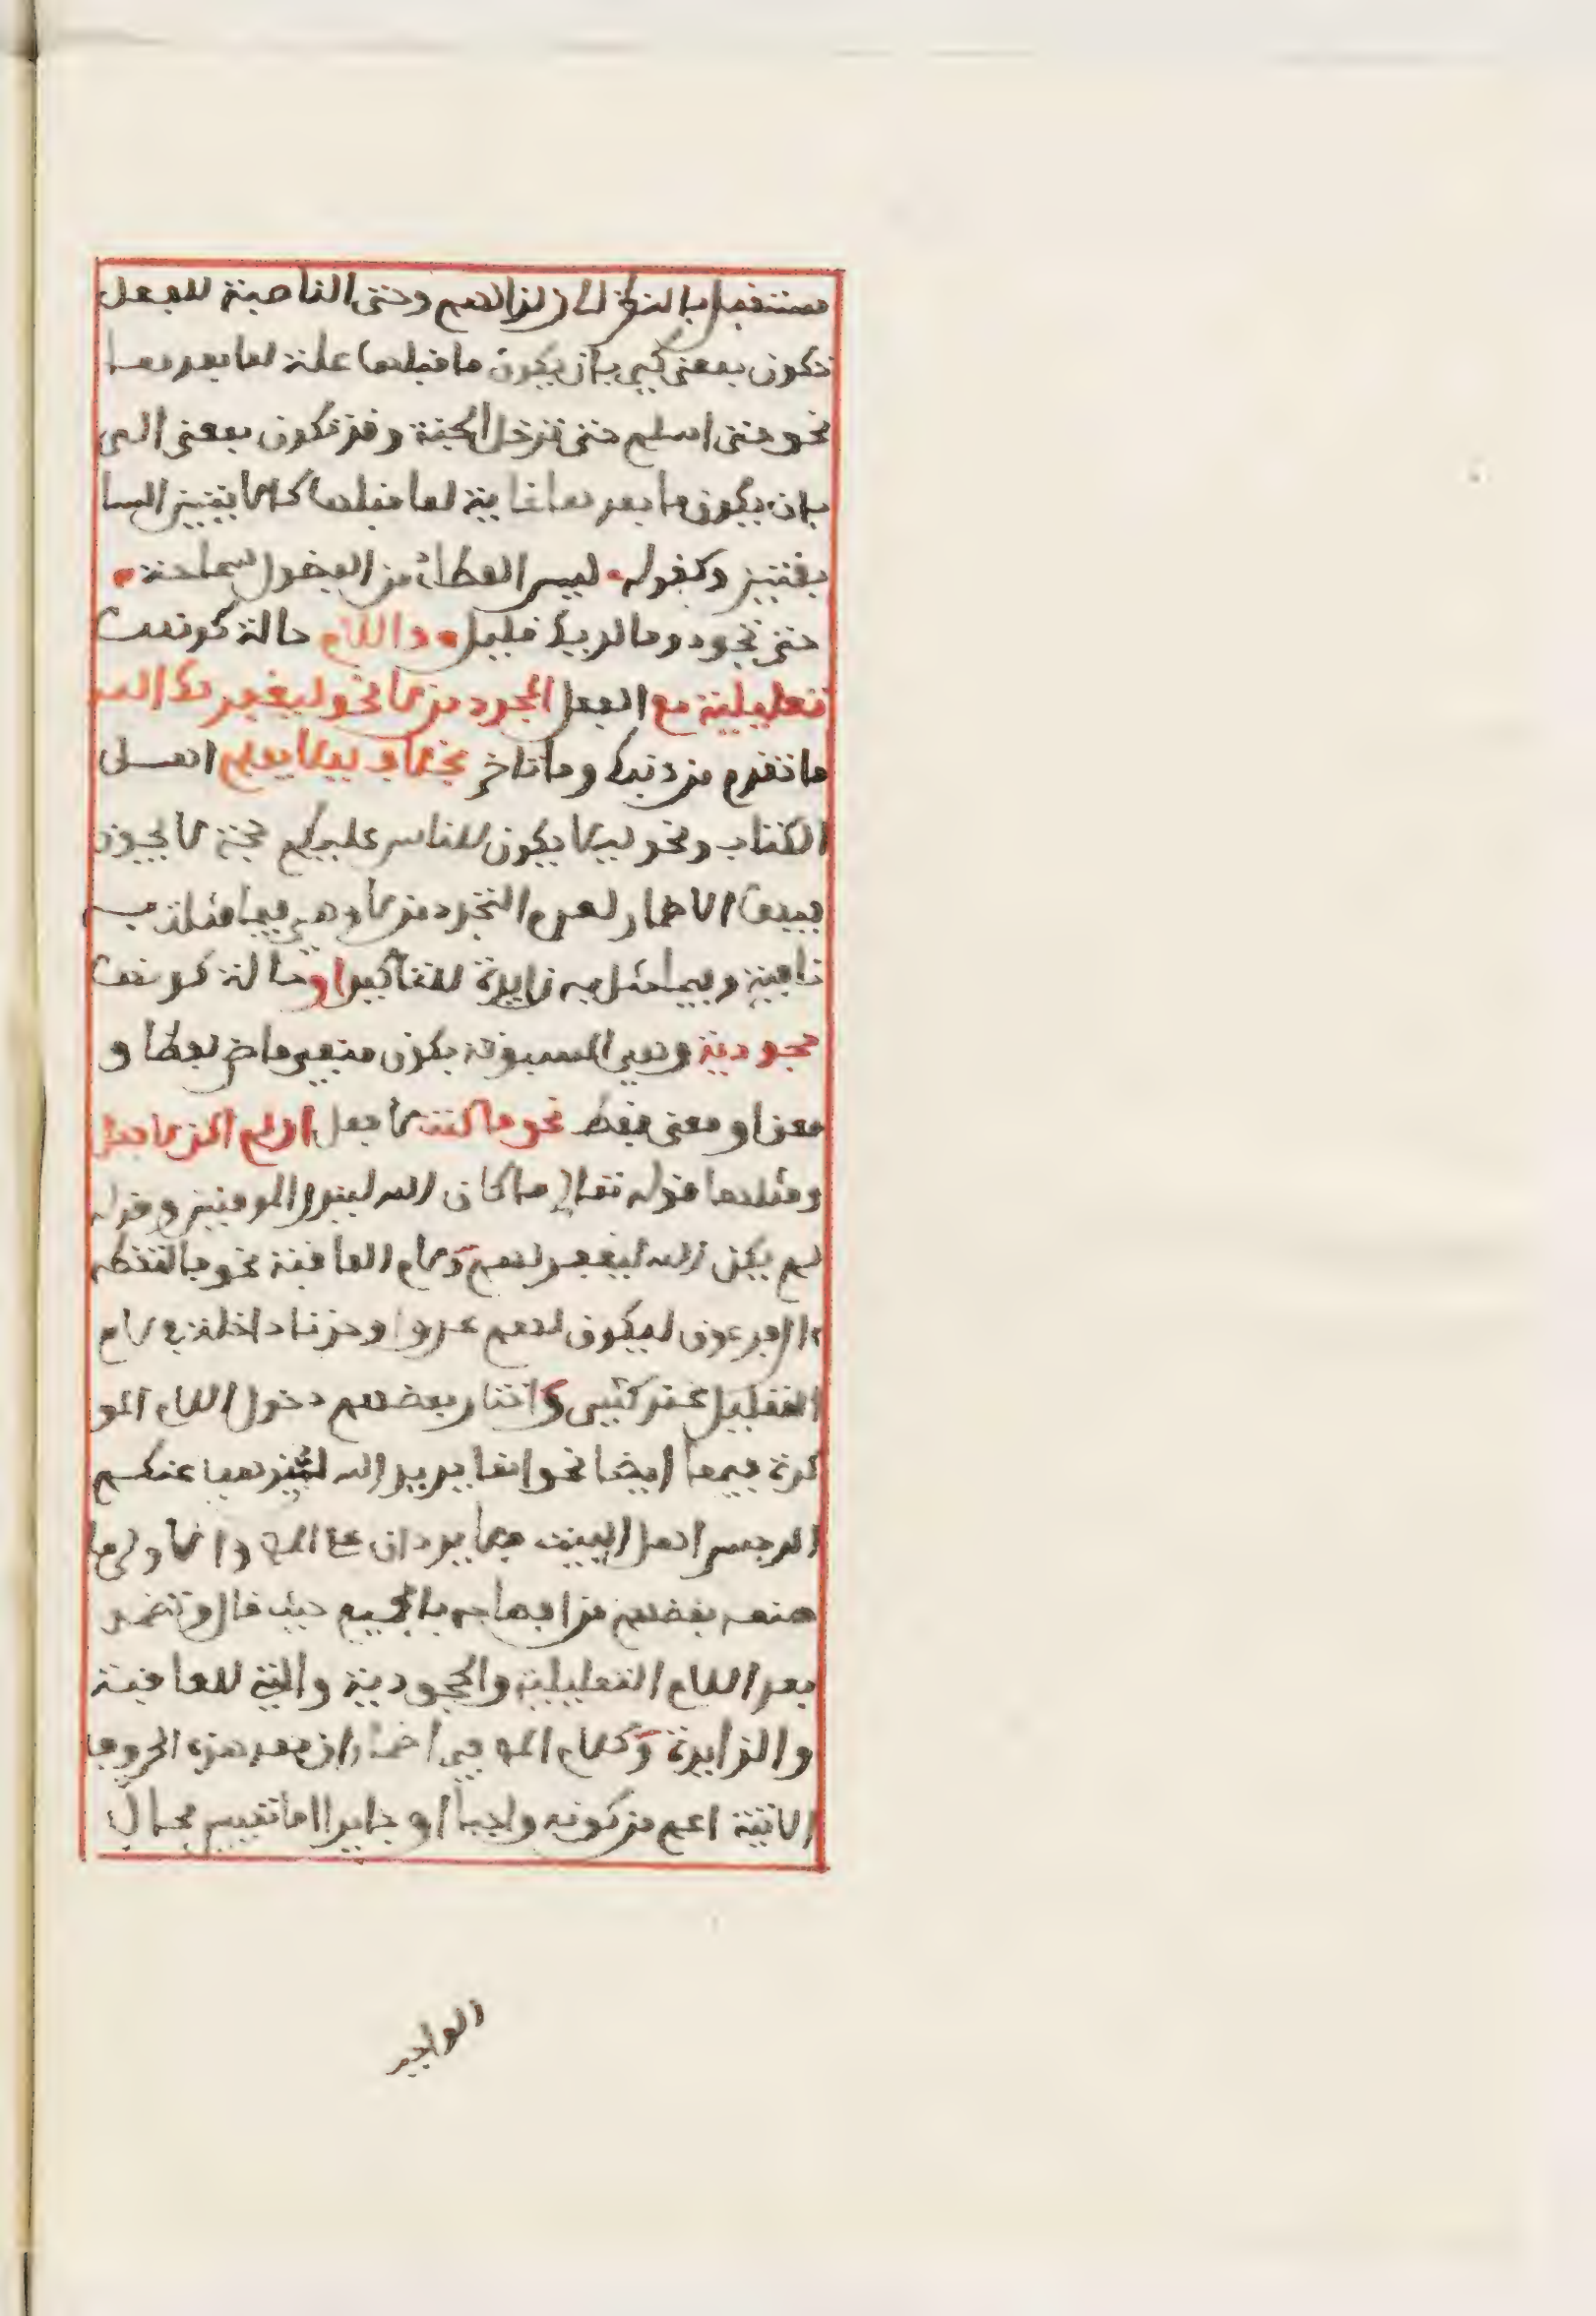 مستقبل بالنظر الى زلزالهم وحتى الناصبة للفعل
تكون بمعنى كي بان يكون ما قبلها علة لما بعدها
نحو حتى اسلم حتى تدخل الجنة وقد تكون بمعنى الى
بان يكون ما بعدها غاية لما قبلها كلا يتبين السا
بقتين وكقوله ليس العطاء من الفضول سماحة
حتى تجود وما لديك قليل واللام حالة كونها
تعليلية مع الفعل المجرد من لا نحو ليغفر لك الله
ما تقدم من ذنبك وما تاخر بخلاف ليلا يعلم اهل
الكتاب ونحو ليلا يكون للناس عليكم حجة لا يجوز
فيها الاظمار لعدم التجرد من لا وهي فيما مثلت به
نافية وفيما مثل به زايدة للتأكيد او حالة كونها
جحودية وهي المسبوقة بكون منفي ماض لفظا و
معنى او معنى فقط نحو ما كنت لا فعل او لم اكن لا فعل
ومثلهما قوله تعالى ما كان الله ليذر المومنين وقوله
لم يكن الله ليغفر لهم ولام العاقبة نحو فالتقطه
ال فرعون ليكون لهم عدوا وحزنا داخلة في لام
التعليل عند كثير واختار بعضهم دخول اللام المو
كدة فيها ايضا نحو انما يريد الله ليذهب عنكم
الرجس اهل البيت فلا يردان على المص والاولى ما
صنعه بعضهم من افصاحه بالجميع حيث قال وتضمر
بعد اللام التعليلية والجحودية والتي للعاقبة
والزايدة وكلام المص في اضمار ان بعد هذه الحروف
الاتية اعم من كونه واجبا او جايزا اما تقييد بحال
الواجب